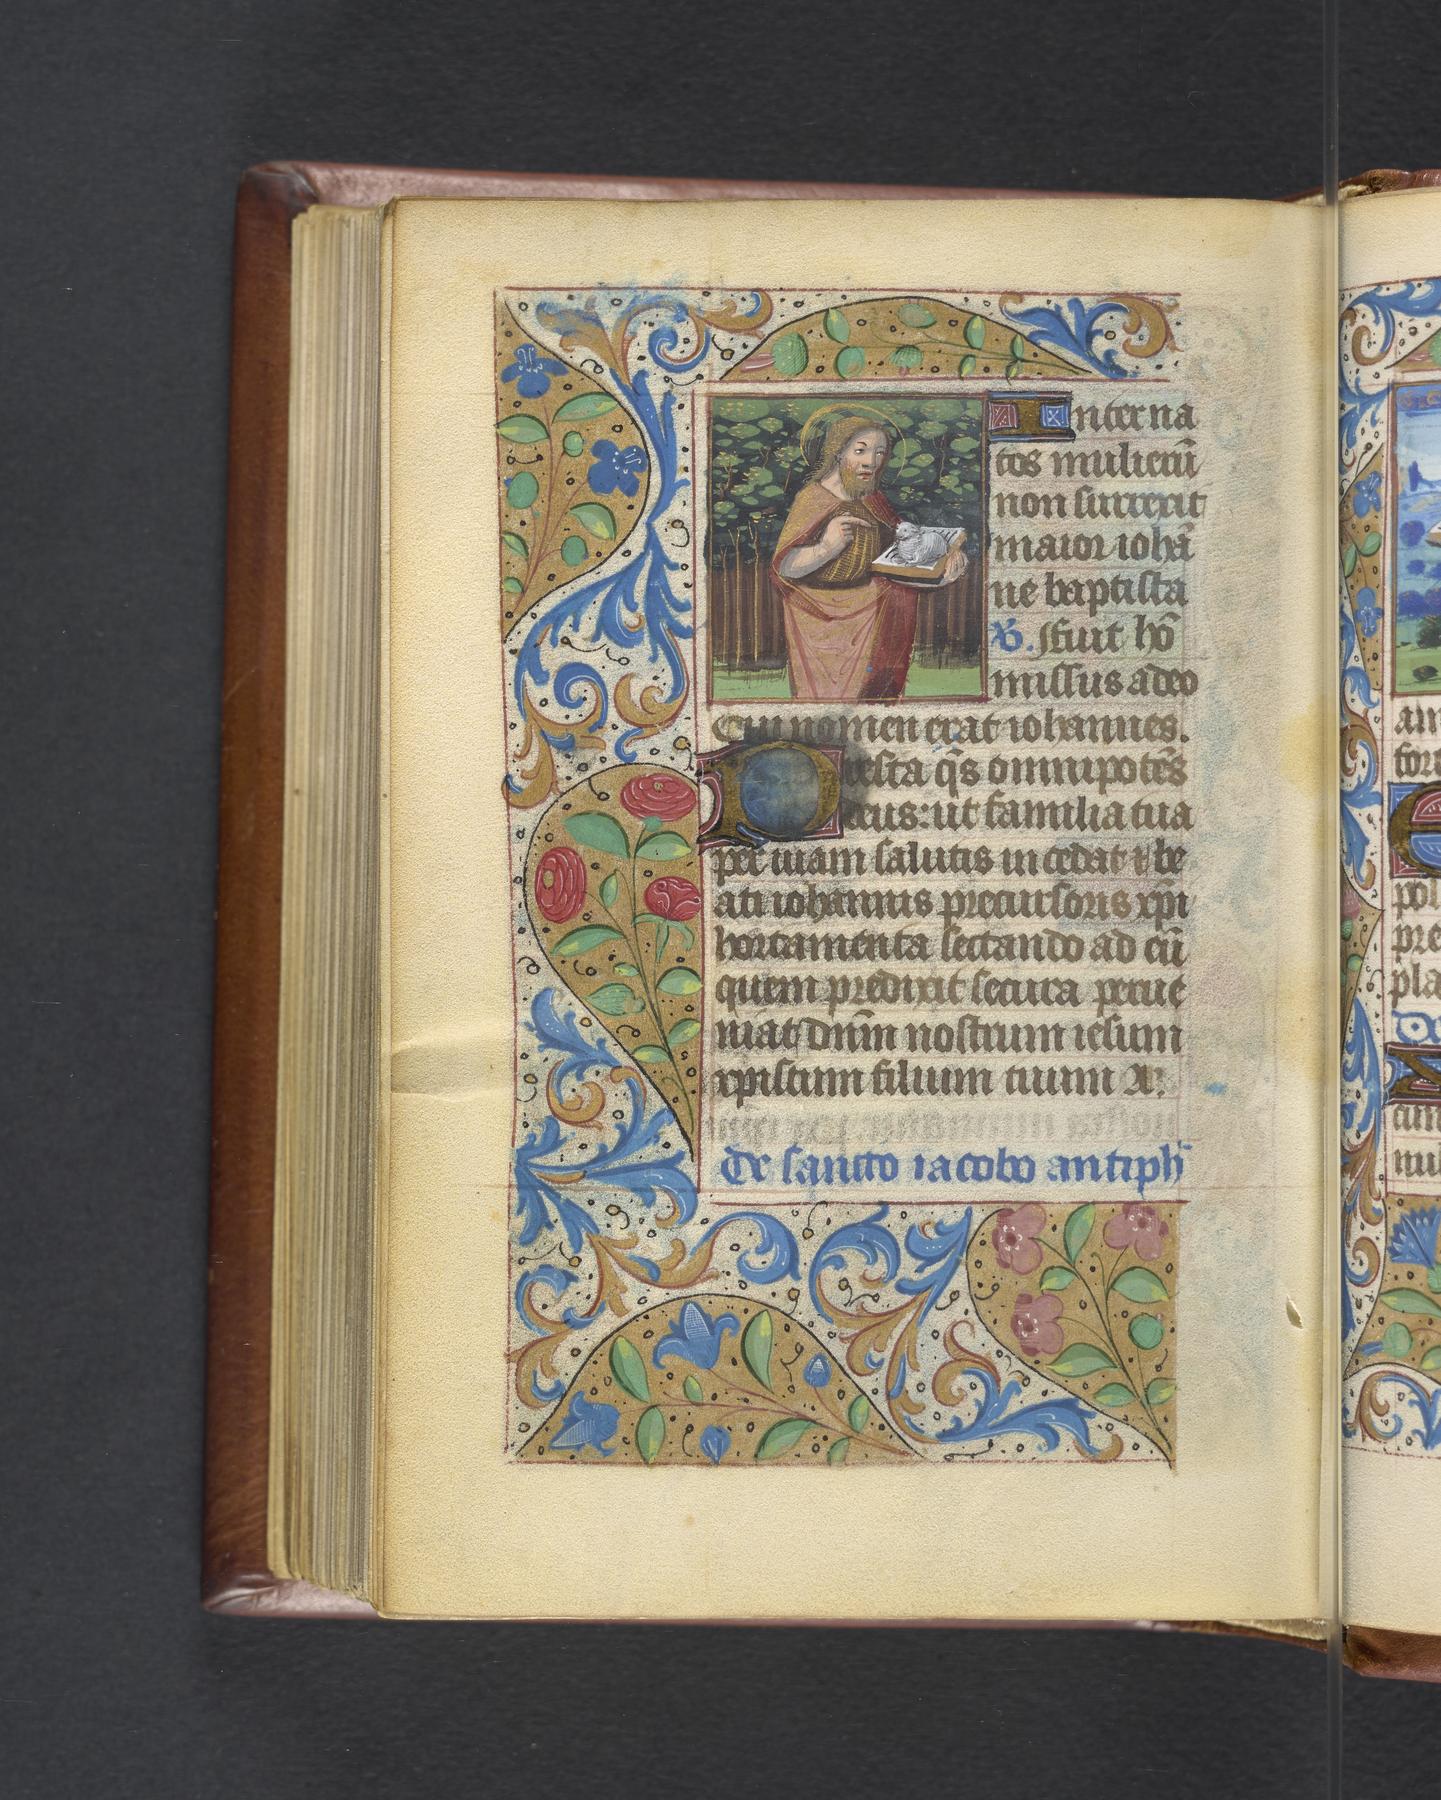 Inter na
tos mulierū
non surrexit
maior iohā
ne baptista
℣. Fuit hō
missus a deo
Cui nomen erat iohannes.
Presta q̄s omnipotēs
deus: ut familia tua
per uiam salutis incedat ⁊ be
ati iohannis precursoris xp̄i
hortamenta sectando ad eū
quem predixit secura perue
niat dn̄m nostrum iesum
xpistum filium tuum A:
De sancto iacobo antiph̄
am
fort
pol
pre
pla